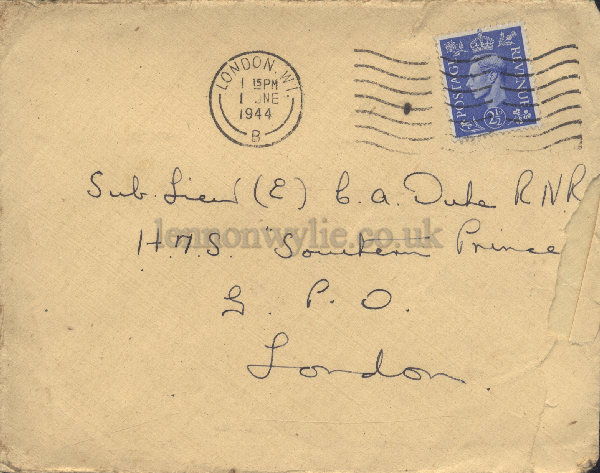 LONDON. W.1.
1 15PM
1 JNE
1944
B
POSTAGE REVENUE
2½
Sub. Lieu (E) C. A. Duke RNR
HMS. "Southern Prince
G. P. O.
London.
lennonwylie.co.uk